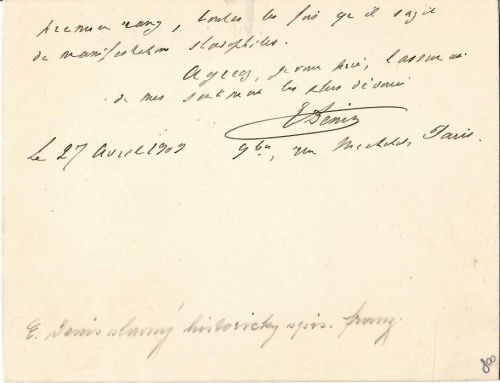 premier rang, toutes les fois qu'il s'agit
de manifestations slavophiles.
Agréez, je vous prie, l'assurance
de mes sentiments les plus dévoués
E Denis
Le 27 Avril 1909 9bis, rue Michelet, Paris.
E. Denis slavný historický spis. franz.
800